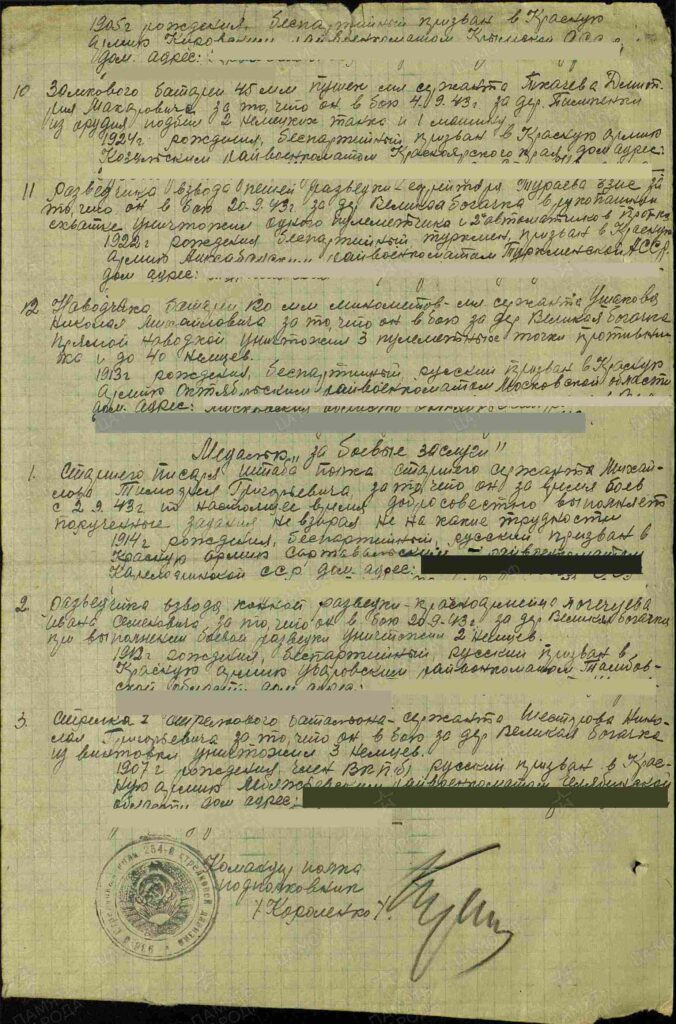 1905г рождения, беспартийный призван в Красную
Армию Кировским райвоенкоматом Крымской
дом. адрес:
10 Замкового батареи 45 мм пушек мл сержанта Ткачева Дмит-
рия Макаровича за то, что он в бою 4.9.43г за дер.
из орудия подбил 2 немецких танка и 1 машину.
1924г рождения, беспартийный, призван в Красную армию
райвоенкоматом Красноярского края, дом адрес:
11 Разведчика взвода пешей разведки ефрейтора Тураева за
то, что он в бою 20.9.43г за дер Великая Богачка в рукопашной
схватке уничтожил одного пулеметчика и 2 автоматчиков пр-ка
1922г рождения беспартийный, туркмен, призван в Красную
Армию райвоенкоматом Туркменской ССР.
дом адрес:
12 Наводчика батареи 120 мм минометов - мл. сержанта Ушакова
Николая Михайловича за то, что он в бою за дер Великая Богачка
прямой наводкой уничтожил 3 пулеметные точки противни-
ка и до 40 немцев.
1913г рождения, беспартийный, русский призван в Красную
Армию Октябрьским райвоенкоматом Московской области
дом. адрес: Московская область
Медалью „за боевые заслуги"
1. Старшего писаря штаба полка старшего сержанта Михай-
лова Тимофея Григорьевича, за то, что он за время боев
с 2.9.43г по настоящее время добросовестно выполняет
порученные задания не взирая не на какие трудности
1914г рождения, беспартийный, русский призван в
Красную армию райвоенкоматом
ССР, дом. адрес:
2. Разведчика взвода конной разведки - красноармейца
Ивана Семеновича, за то, что он в бою 20.9.43г. за дер Великая Богачка
при выполнении боевой разведки уничтожил 2 немцев.
1912г рождения, беспартийный, русский призван в
Красную армию Уваровским райвоенкоматом Тамбов-
ской области, дом адрес:
3. Стрелка 2 стрелкового батальона - сержанта Нико-
лая Григорьевича за то, что он в бою за дер Великая Богачка
из винтовки уничтожил 3 немцев.
1907г рождения, член ВКП(б), русский призван в Крас-
ную армию райвоенкоматом Челябинской
области дом адрес:
Командир полка
подполковник
/Короленко/.
254-й стрелковой дивизии